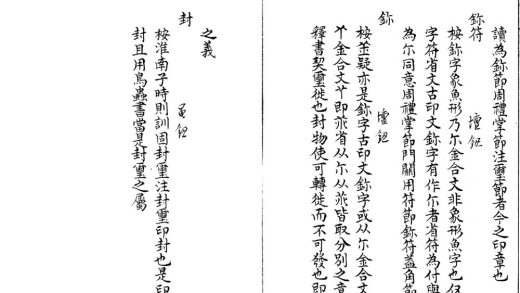 讀為鉨節周禮掌節注璽節者今之印章也
鉨符 壇鈕
桉鉨字象魚形乃尒金合文非象形魚字也但
字符省文古印文鉨字有作尒者省符為付與
為尒同意周禮掌節門關用符節鉨符蓋角節
鉨 壇鈕
桉疑亦是鉨字古印文鉨字或从尒金合文
丫金合文丫即省从尒从皆取分別之意
釋書契璽徙也封物使可轉徙而不可發也即
之義
封 鈕
桉淮南子時則訓固封璽注封璽印封也是印
封且用鳥蟲書當是封璽之屬